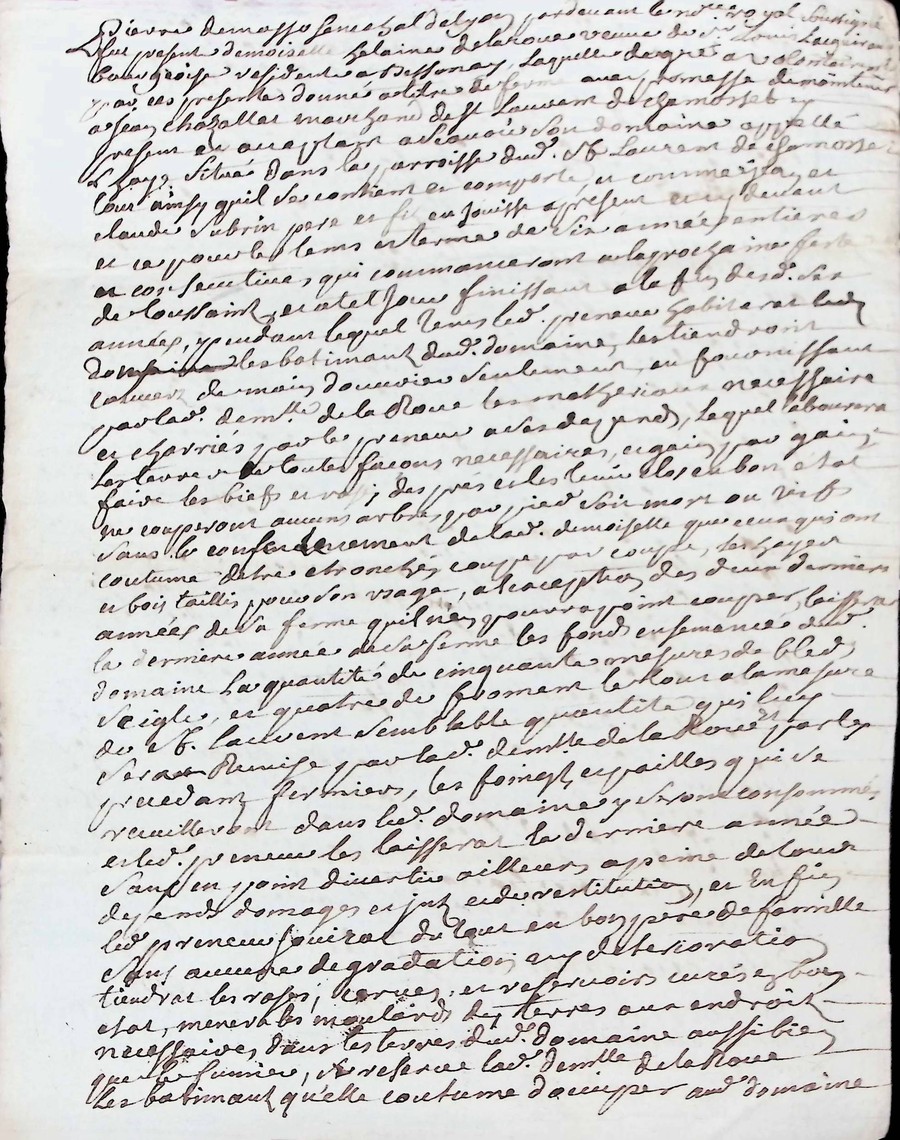 Pierre de masso senechal de Lyon pardevant le no.re royal soussigné
fut presente demoiselle helaine delaroue veuve de S.r Louis
bourgeoise residente a Bessenay, laquelle de gré a volontairement
par ces presentes donné a titre de ferme avec promesse de maintenir
a Jean chazallet marchand de St Laurent de chamousset y
present et acceptant a scavoir son domaine appellé
situé dans la parroisse dud. St Laurent de chamousset
tout ainsy quil se contient et comporte, et comme Jean et
claude subrin pere et fils en jouisse a present et cy devant
et ce pour le tems et terme de six années entieres
et consecutives qui commanceront a la prochaine feste
de toussaint, et a tel jour finissant a la fin desd. six
années, pendant lequel tems led. preneur habiterat led.
les batimant dud. domaine, les tiendront
couvert de main douvrier seulement, en fournissant
par lad. dem.lle de la Roue les matheriaux necessaire
et charriés par le preneur a ses depends, lequel labourera
les terre de toutes facons necessaires, et gain par gain,
faire les biefs et ras, des prés et les tenir clos en bon etat
ne couperont aucuns arbres par pied soit mort ou vifs
sans le consentement de lad. demoiselle que ceux qui ont
coutume detre etronchés coupe par coupe, les hayes
et bois taillis pour son usage, a lexception des deux dernieres
années de sa ferme quil ney pourra point couper, laisserat
la derniere année de sa ferme les fonds ensemancé dud.
domaine La quantité de cinquante mesures de bled
seigle, et quatre de froment le tout a la mesure
de St. laurent semblable quantité qui luy
serat Remise par lad. dem.lle de la Roue par les
precedant fermiers, les foingt et pailles qui se
recuilleront dans led. domaine y seront consommés
et led. preneur les laisserat la derniere année
sans en point divertir ailleurs a peine de tous
depends domages et jnt et de restitution, et En fin
led. preneur jouirat du tout en bon pere de famille
sans aucune degradation ny deterioration
tiendrat les rases, serves, et reservoirs curés en bon
etat, menera les moulards des terres aux endroit
necessaires dans les terres dud. domaine aussi bien
que le fumier, se reserve lad. dem.lle de la Roue
les batimant qu'elle coutume d'occuper aud. domaine